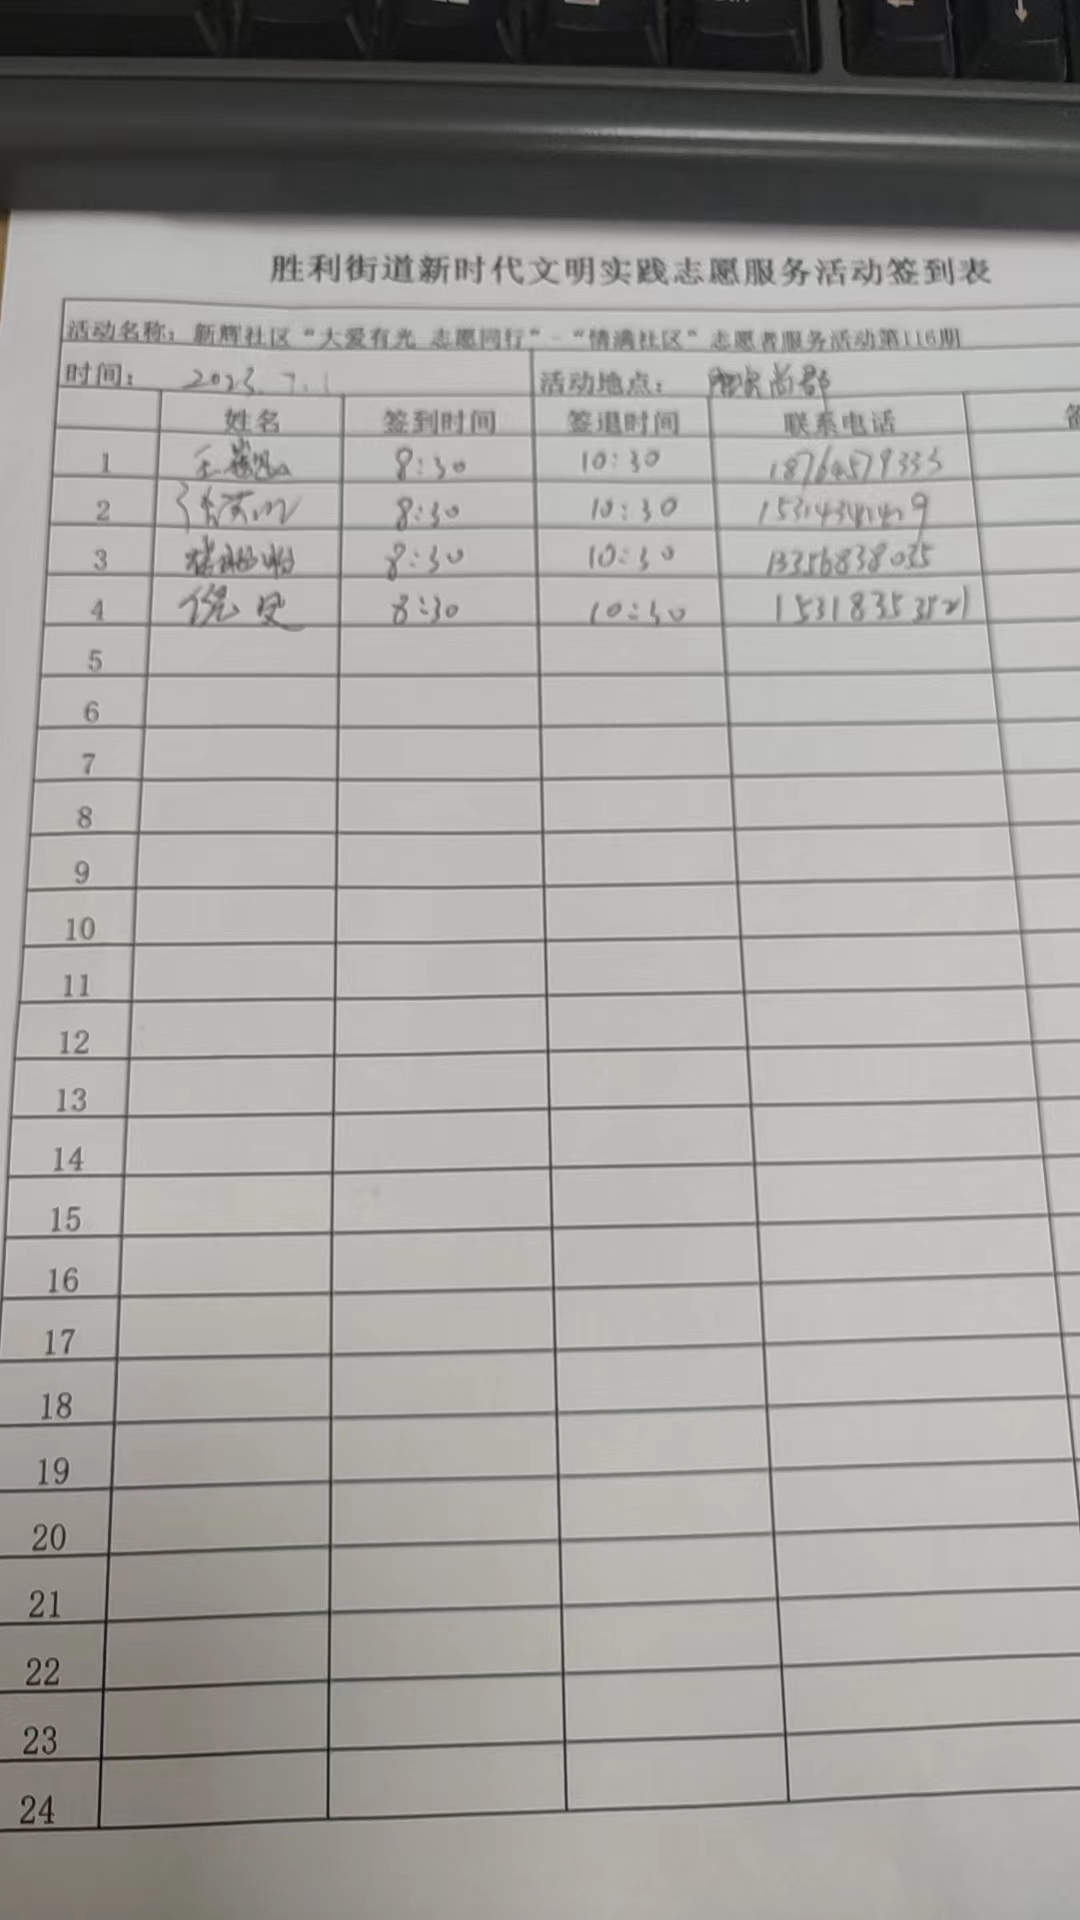 胜利街道新时代文明实践志愿服务活动签到表
活动名称：新辉社区“大爱有光 志愿同行”-“情满社区”志愿者服务活动第116期
时间： 2023.7.1 活动地点：
姓名 签到时间 签退时间 联系电话 备
1 8:30 10:30 18764579335
2 8:30 10:30
3 8:30 10:30 13356838035
4 倪 8:30 10:30 15318353521
5
6
7
8
9
10
11
12
13
14
15
16
17
18
19
20
21
22
23
24